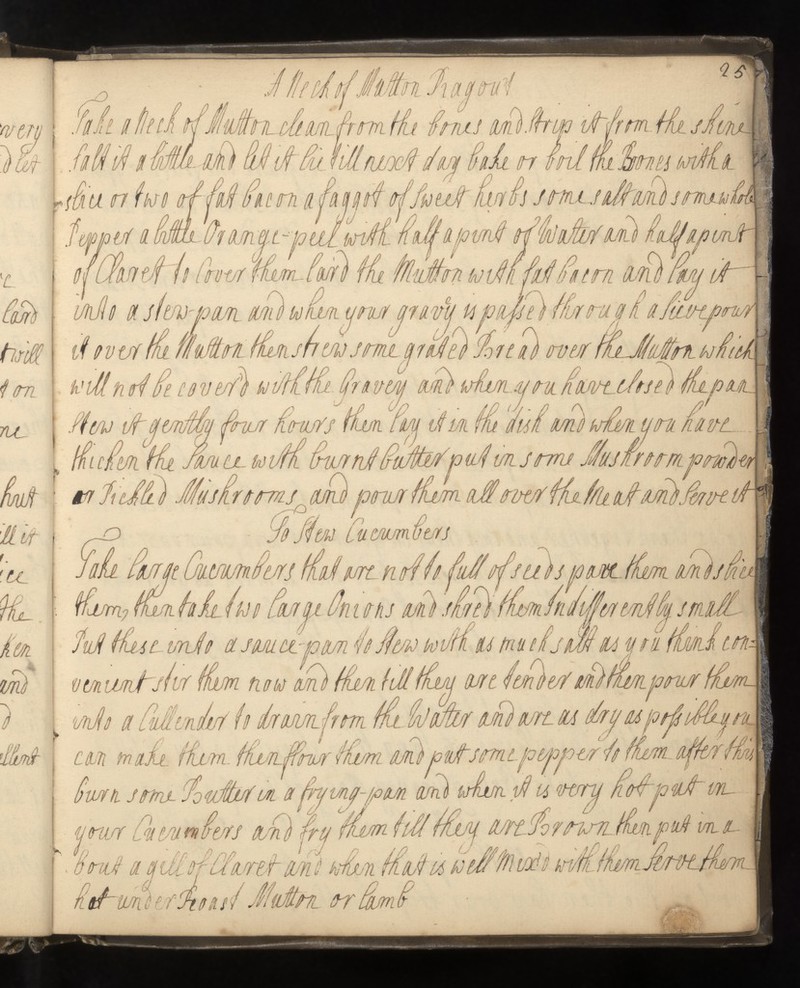 25
A Neck of Mutton Ragout
Take a Neck of Mutton clean from the bones and strip it from the skine
salt it a little and let it lie till next day bake or boil the Bones with a
slice or two of fat bacon a faggot of sweet herbs some salt and some whole
Pepper a little Orange-peel with half a pint of Water and half a pint
of Claret to Cover them lard the Mutton with fat bacon and lay it
into a stew pan and when your gravy is passed through a sieve pour
it over the Mutton then strew some grated Bread over the Mutton which
will not be cover'd with the Gravey and when you have closed the pan
stew it gently four hours then lay it in the dish and when you have
thicken the Sauce with burnt butter put in some Mushroom powder
or Pickled Mushrooms and pour them all over the Meat and Serve it
To Stew Cucumbers
Take large Cucumbers that are not to full of seeds pare them and slice
them, then take two large Onions and shred them Indifferently small
Put these into a sauce-pan to stew with as much salt as you think con=
venient stir them now and then till they are tender and then pour them
into a Cullender to drain from the Water and are as dry as possible you
can make them then flour them and put some pepper to them after this
burn some Butter in a frying-pan and when it is very hot put in
your Cucumbers and fry them till they are Brown then put in a
bout a gill of Claret and when that is well Mix'd with them Serve them
hot under Roast Mutton or lamb
every
lard
will
on
but
ill it
the
ken
and
ellent